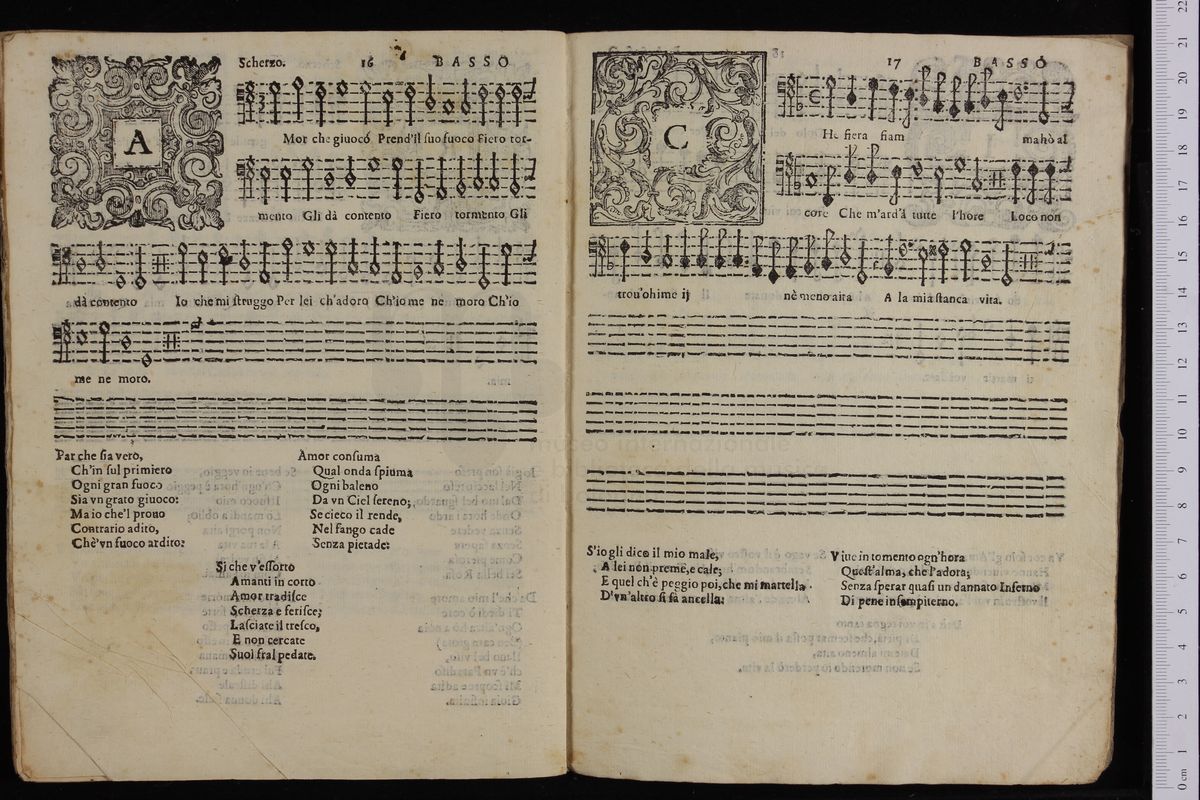 Scherzo. 16 BASSO
A
Mor che giuocó Prend'il suo fuoco Fiero tor-
mento Gli dà contento Fiero tormento Gli
dà contento Io che mi struggo Per lei ch'adoro Ch'io me ne moro Ch'io
me ne moro.
Par che sia vero,
Ch'in sul primiero
Ogni gran fuoco
Sia vn grato giuoco:
Ma io che'l prouo
Contrario adito,
Chè'vn fuoco ardito:
Amor consuma
Qual onda spiuma
Ogni baleno
Da vn Ciel sereno;
Se cieco il rende,
Nel fango cade
Senza pietade:
Sì che v'essorto
Amanti in corto
Amor tradisce
Scherza e ferisce;
Lasciate il tresco,
E non cercate
Suoi fral pedate.
17 BASSO
C
He fiera fiam ma hò al
core Che m'ard'à tutte l'hore Loco non
trou'ohime ij nè meno aita A la mia stanca vita.
S'io gli dico il mio male,
A lei non preme, e cale;
E quel ch'è peggio poi, che mi martella
D'vn'altro si fà ancella:
Viue in tomento ogn'hora
Quest'alma, che l'adora;
Senza sperar quasi un dannato Inferno
Di pene in sempiterno.
0 cm 1 2 3 4 5 6 7 8 9 10 11 12 13 14 15 16 17 18 19 20 21 22